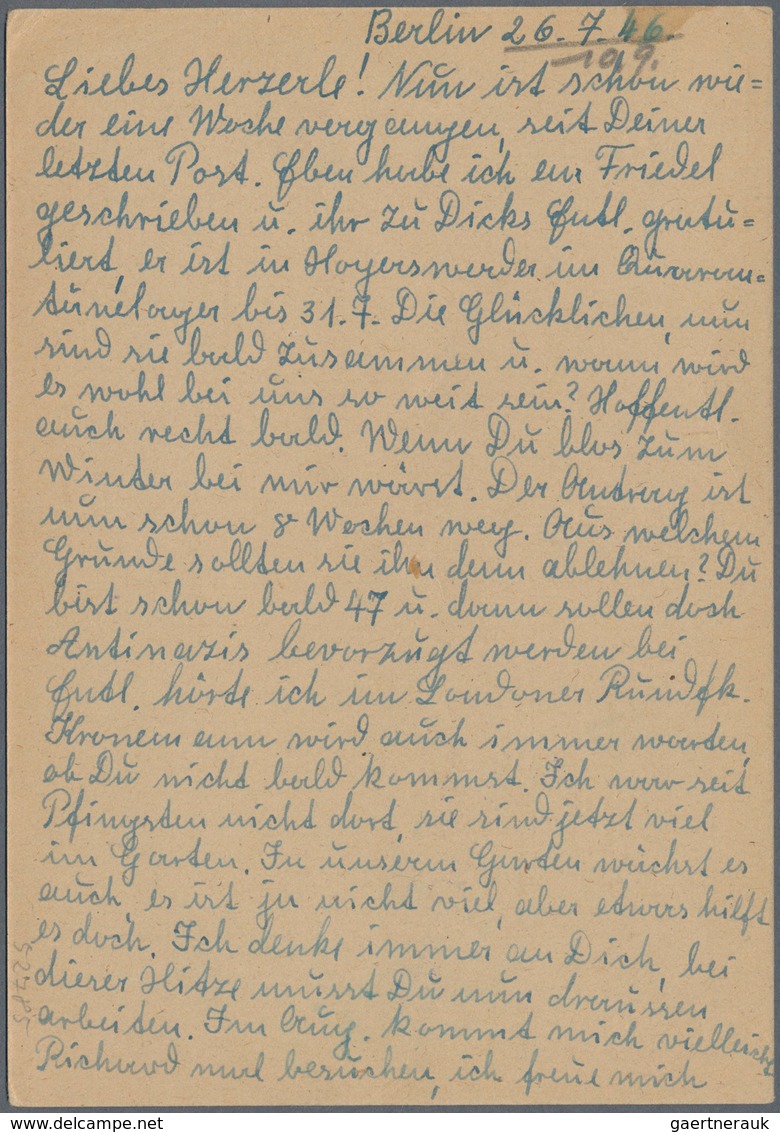 Berlin 26. 7. 46.
199.
Liebes Herzerle! Nun ist schon wie=
der eine Woche vergangen, seit Deiner
letzten Post. Eben habe ich an Friedel
geschrieben u. ihr zu Dicks Entl. gratu=
liert, er ist in Hoyerswerda im Quaran=
tänelager bis 31.7. Die Glücklichen, nun
sind sie bald zusammen u. wann wird
es wohl bei uns so weit sein? Hoffentl.
auch recht bald. Wenn Du blos zum
Winter bei mir wärst. Der Antrag ist
nun schon 8 Wochen weg. Aus welchem
Grunde sollten sie ihn denn ablehnen? Du
bist schon bald 47 u. dann sollen doch
Antinazis bevorzugt werden bei
Entl. hörte ich im Londoner Rundfk.
Kronemann wird auch immer warten,
ob Du nicht bald kommst. Ich war seit
Pfingsten nicht dort, sie sind jetzt viel
im Garten. In unserm Garten wächst es
auch, es ist ja nicht viel, aber etwas hilft
es doch. Ich denke immer an Dich, bei
dieser Hitze musst Du nun draussen
arbeiten. Im Aug. kommt mich vielleicht
Richard mal besuchen, ich freue mich
52785
gaertnerauk